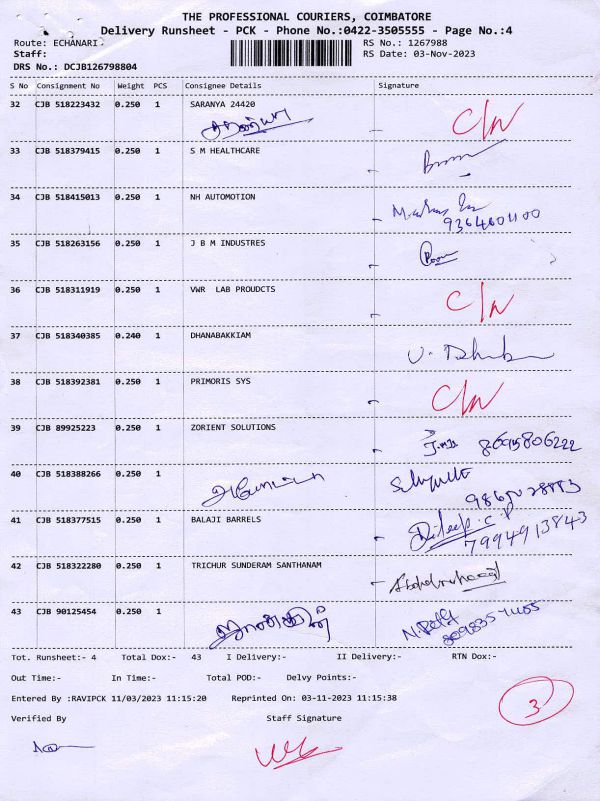 THE PROFESSIONAL COURIERS, COIMBATORE
Delivery Runsheet - PCK - Phone No.:0422-3505555 - Page No.:4
Route: ECHANARI
RS No.: 1267988
Staff:
RS Date: 03-Nov-2023
DRS No.: DCJB126798804
S No Consignment No Weight PCS Consignee Details Signature
32 CJB 518223432 0.250 1 SARANYA 24420 C/N
33 CJB 518379415 0.250 1 S M HEALTHCARE
34 CJB 518415013 0.250 1 NH AUTOMOTION
35 CJB 518263156 0.250 1 J B M INDUSTRES
36 CJB 518311919 0.250 1 VWR LAB PROUDCTS C/N
37 CJB 518340385 0.240 1 DHANABAKKIAM
38 CJB 518392381 0.250 1 PRIMORIS SYS C/N
39 CJB 89925223 0.250 1 ZORIENT SOLUTIONS 8695806222
40 CJB 518388266 0.250 1
41 CJB 518377515 0.250 1 BALAJI BARRELS Dileep.C.P
7994913843
42 CJB 518322280 0.250 1 TRICHUR SUNDERAM SANTHANAM
43 CJB 90125454 0.250 1
Tot. Runsheet:- 4 Total Dox:- 43 I Delivery:- II Delivery:- RTN Dox:-
Out Time:- In Time:- Total POD:- Delvy Points:-
Entered By :RAVIPCK 11/03/2023 11:15:20 Reprinted On: 03-11-2023 11:15:38
3
Verified By Staff Signature